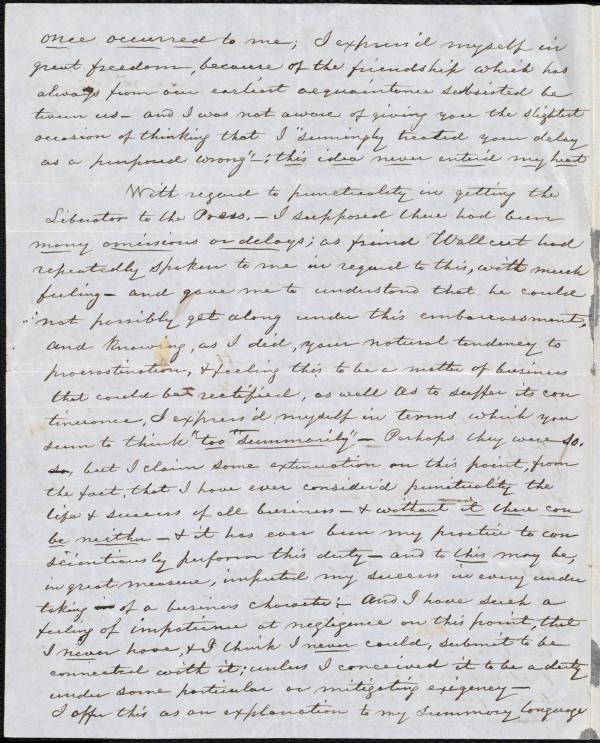 once occurred to me; I express'd myself in
great freedom, because of the friendship which has
always from our earliest acquaintance subsisted be
tween us — and I was not aware of giving you the slightest
occasion of thinking that I "seemingly treated your delay
as a purposed wrong" —; this idea never enter'd my heart
With regard to punctuality in getting the
Liberator to the Press. — I supposed there had been
many omissions or delays; as friend Wallcut had
repeatedly spoken to me in regard to this, with much
feeling — and gave me to understand that he could
not possibly get along under this embarrassment,
and knowing, as I did, your natural tendency to
procrastination, & feeling this to be a matter of business
that could be rectified, as well as to suffer its con
tinuance, I express'd myself in terms which you
seem to think "too "summarily" — Perhaps they were so.
so, but I claim some extenuation on this point, from
the fact, that I have ever consider'd punctuality the
life & success of all business — & without it there can
be neither — & it has ever been my practice to con
scientiously perform this duty — and to this may be,
in great measure, imputed my success in every under
taking of a business character — And I have such a
feeling of impatience at negligence on this point, that
I never have, & I think I never could, submit to be
connected with it; unless I conceived it to be a duty
under some particular or mitigating exigency —
I offer this as an explanation to my summary language